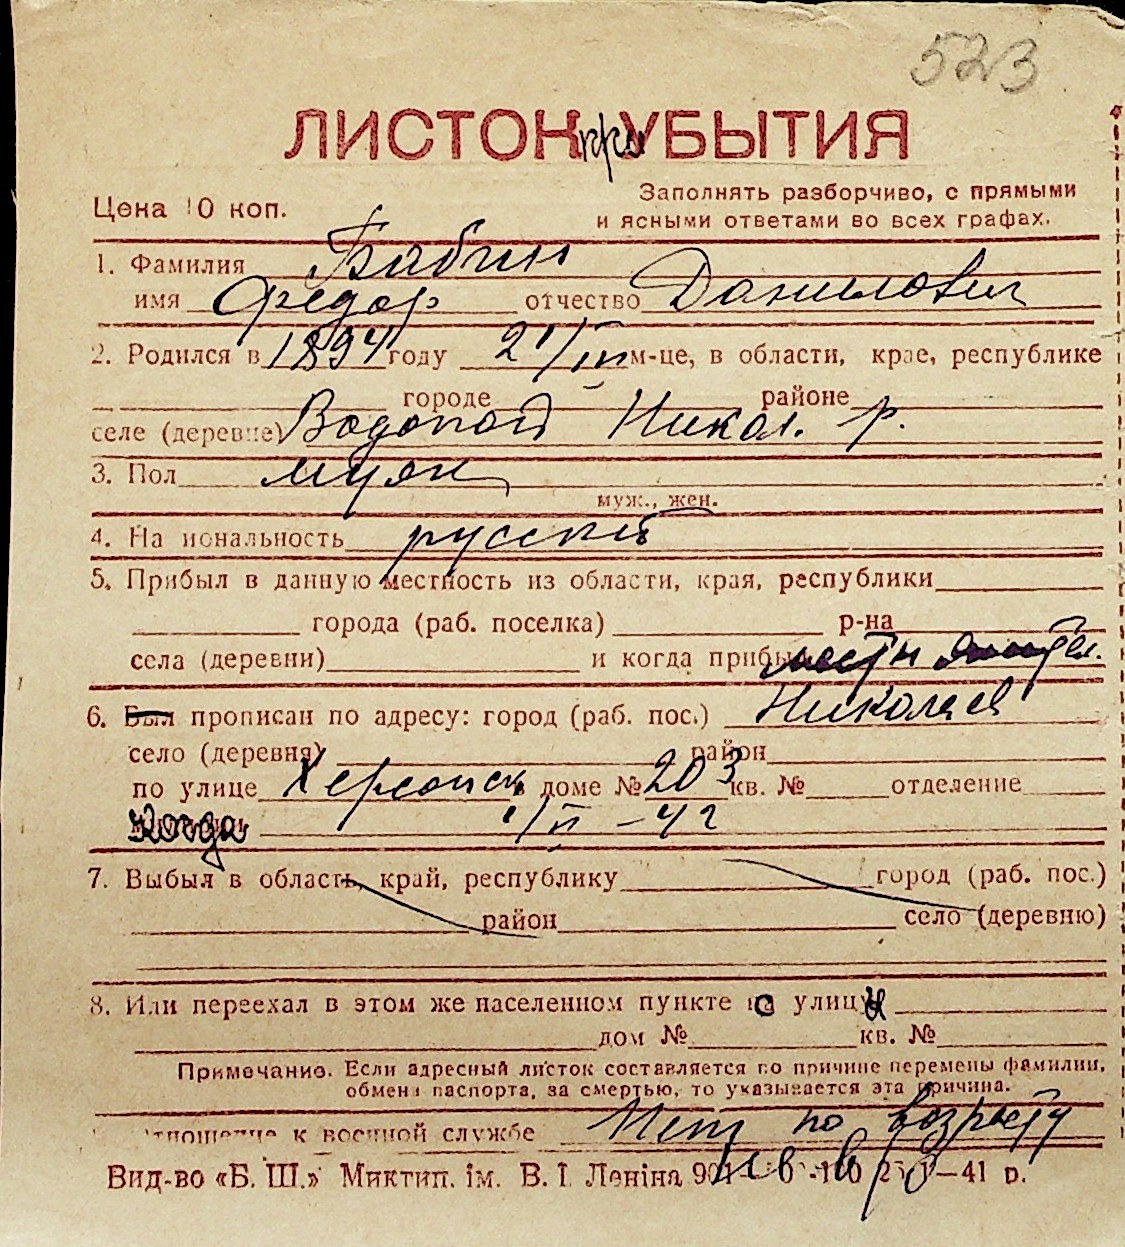 523
ЛИСТОК при УБЫТИЯ
Цена 10 коп.
Заполнять разборчиво, с прямыми
и ясными ответами во всех графах.
1. Фамилия Бабин
имя Федор отчество Данилович
2. Родился в 1894 году 21/III м-це, в области, крае, республике
городе районе
селе (деревне) Водопой Никол. р.
3. Пол муж
муж., жен.
4. На иональность русский
5. Прибыл в данную местность из области, края, республики
города (раб. поселка) р-на
села (деревни) и когда прибыл местн
6. Был прописан по адресу: город (раб. пос.) Николаев
село (деревня) район
по улице Херсонск в доме № 203 кв. № отделение
когда 1/II – 42
7. Выбыл в область, край, республику город (раб. пос.)
район село (деревню)
8. Или переехал в этом же населенном пункте с улицы
дом № кв. №
Примечание. Если адресный листок составляется по причине перемены фамилии,
обмена паспорта, за смертью, то указывается эта причина.
отношение к военной службе Нет по возрасту
Вид-во «Б. Ш.» Миктип. ім. В. І. Леніна –41 р.